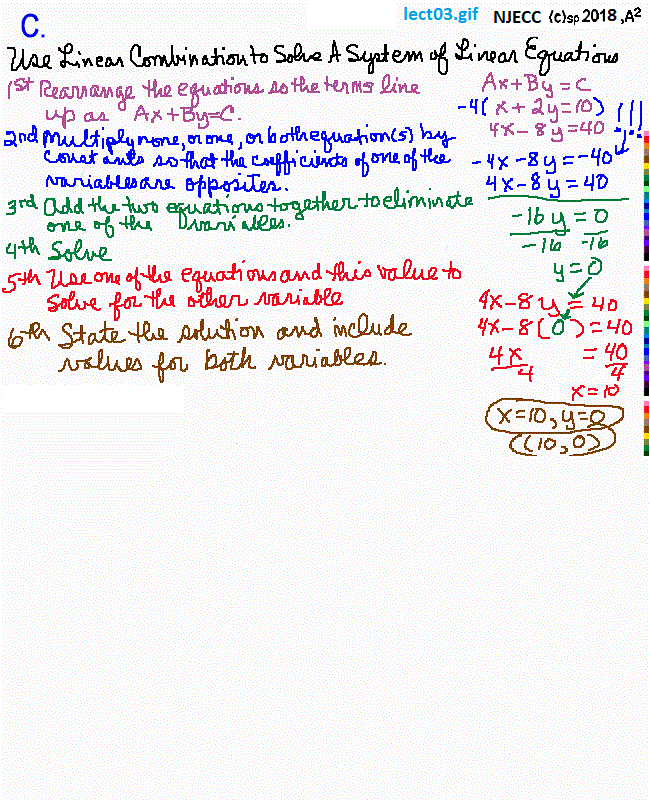 C.
lect03.gif NJECC (c)sp 2018 ,A²
Use Linear Combination to Solve A System of Linear Equations
1st Rearrange the equations so the terms line
up as Ax+By=C.
2nd Multiply none, or one, or both equation(s) by
constants so that the coefficients of one of the
variables are opposites.
3rd Add the two equations together to eliminate
one of the variables.
4th Solve
5th Use one of the equations and this value to
Solve for the other variable
6th State the solution and include
values for both variables.
Ax+By=C
-4(x+2y=10) !!!
4x-8y=40
-4x-8y=-40
4x-8y=40
-16y=0
-16 -16
y=0
4x-8y=40
4x-8(0)=40
4x =40
4 4
x=10
x=10, y=0
(10,0)